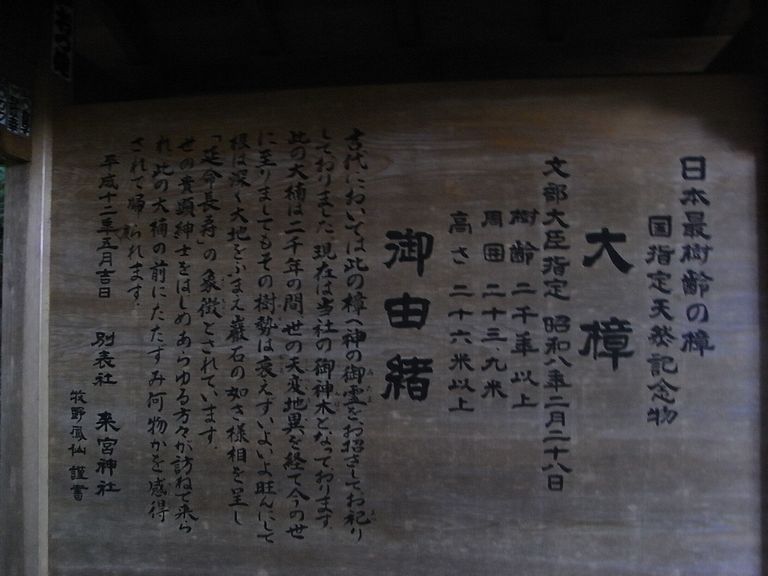 日本最樹齢の樟
国指定天然記念物
大樟
文部大臣指定 昭和八年二月二十八日
樹齢 二千年以上
周囲 二十三、九米
高さ 二十六米以上
御由緒
古代においては此の樟へ神の御霊をお招きしてお祀り
しておりました 現在は当社の御神木となっております
此の大楠は二千年の間世の天変地異を経て今の世
に至りましてもその樹勢は衰えずいよいよ旺んにして
根は深く大地をふまえ巌石の如き様相を呈し
「延命長寿」の象徴とされています。
世の貴顕紳士をはじめあらゆる方々が訪ねて来ら
れ此の大楠の前にたたずみ何物かを感得
されて帰られます。
平成十二年五月吉日
別表社 来宮神社
牧野鳳仙 謹書